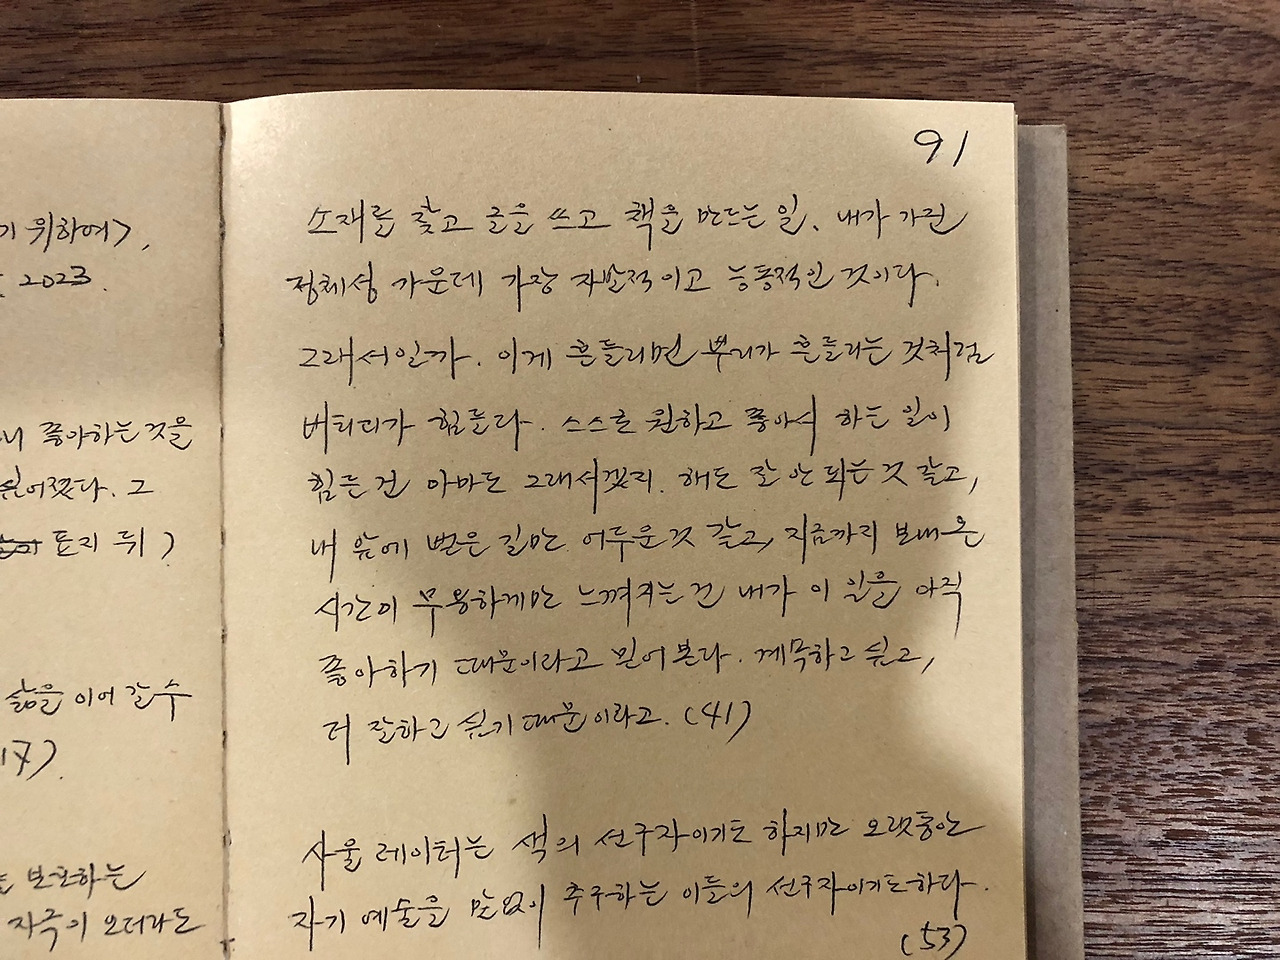 기 위하여>,
2023.
좋아하는 것을
싶어졌다. 그
표지 뒤)
삶을 이어 갈 수
17).
보호하는
자극이 오더라도
91
소재를 찾고 글을 쓰고 책을 만드는 일. 내가 가진
정체성 가운데 가장 자발적이고 능동적인 것이다.
그래서인가. 이게 흔들리면 뿌리가 흔들리는 것처럼
버티기가 힘들다. 스스로 원하고 좋아서 하는 일이
힘든 건 아마도 그래서겠지. 해도 잘 안 되는 것 같고,
내 앞에 뻗은 길만 어두운 것 같고, 지금까지 보내온
시간이 무용하게만 느껴지는 건 내가 이 일을 아직
좋아하기 때문이라고 믿어 본다. 계속하고 싶고,
더 잘하고 싶기 때문이라고. (41)
사울 레이터는 색의 선구자이기도 하지만 오랫동안
자기 예술을 말없이 추구하는 이들의 선구자이기도 하다.
(53)